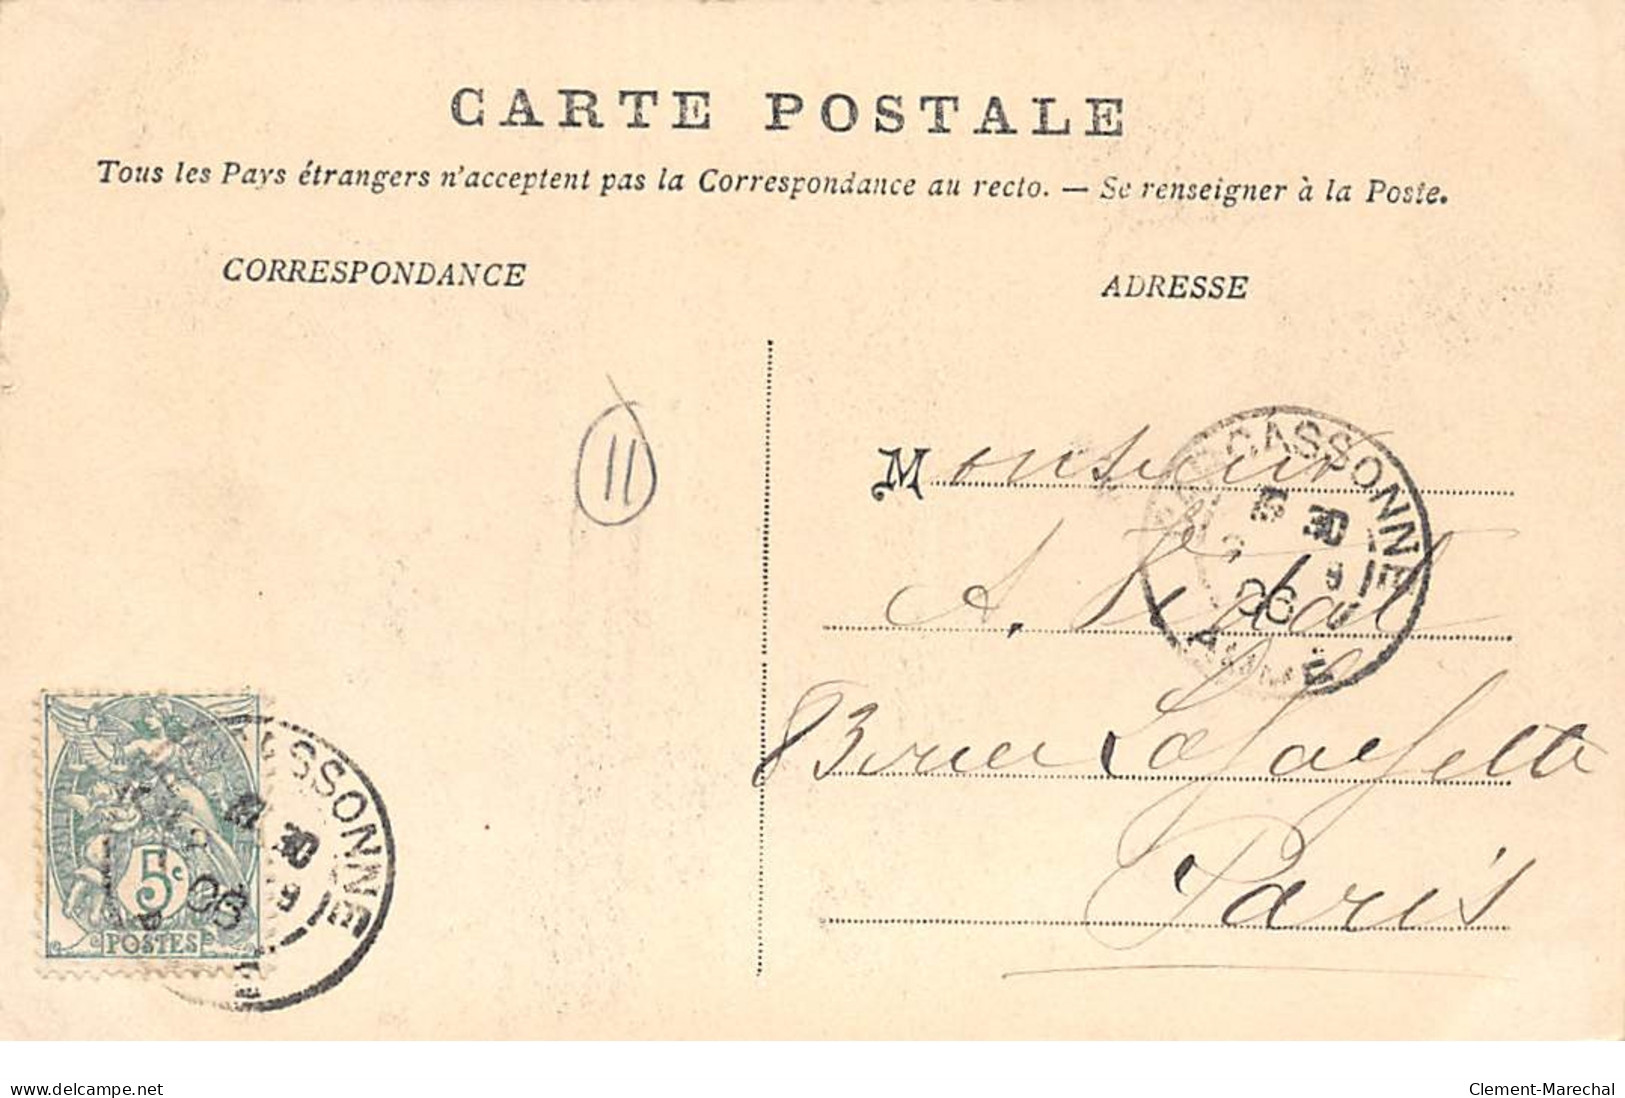 CARTE POSTALE
Tous les Pays étrangers n'acceptent pas la Correspondance au recto. — Se renseigner à la Poste.
CORRESPONDANCE
ADRESSE
11
Monsieur
A. Vidal
83 rue Lafayette
Paris
CARCASSONNE
30
06
AUDE
5c
POSTES
CARCASSONNE
30
06
www.delcampe.net
Clement-Marechal